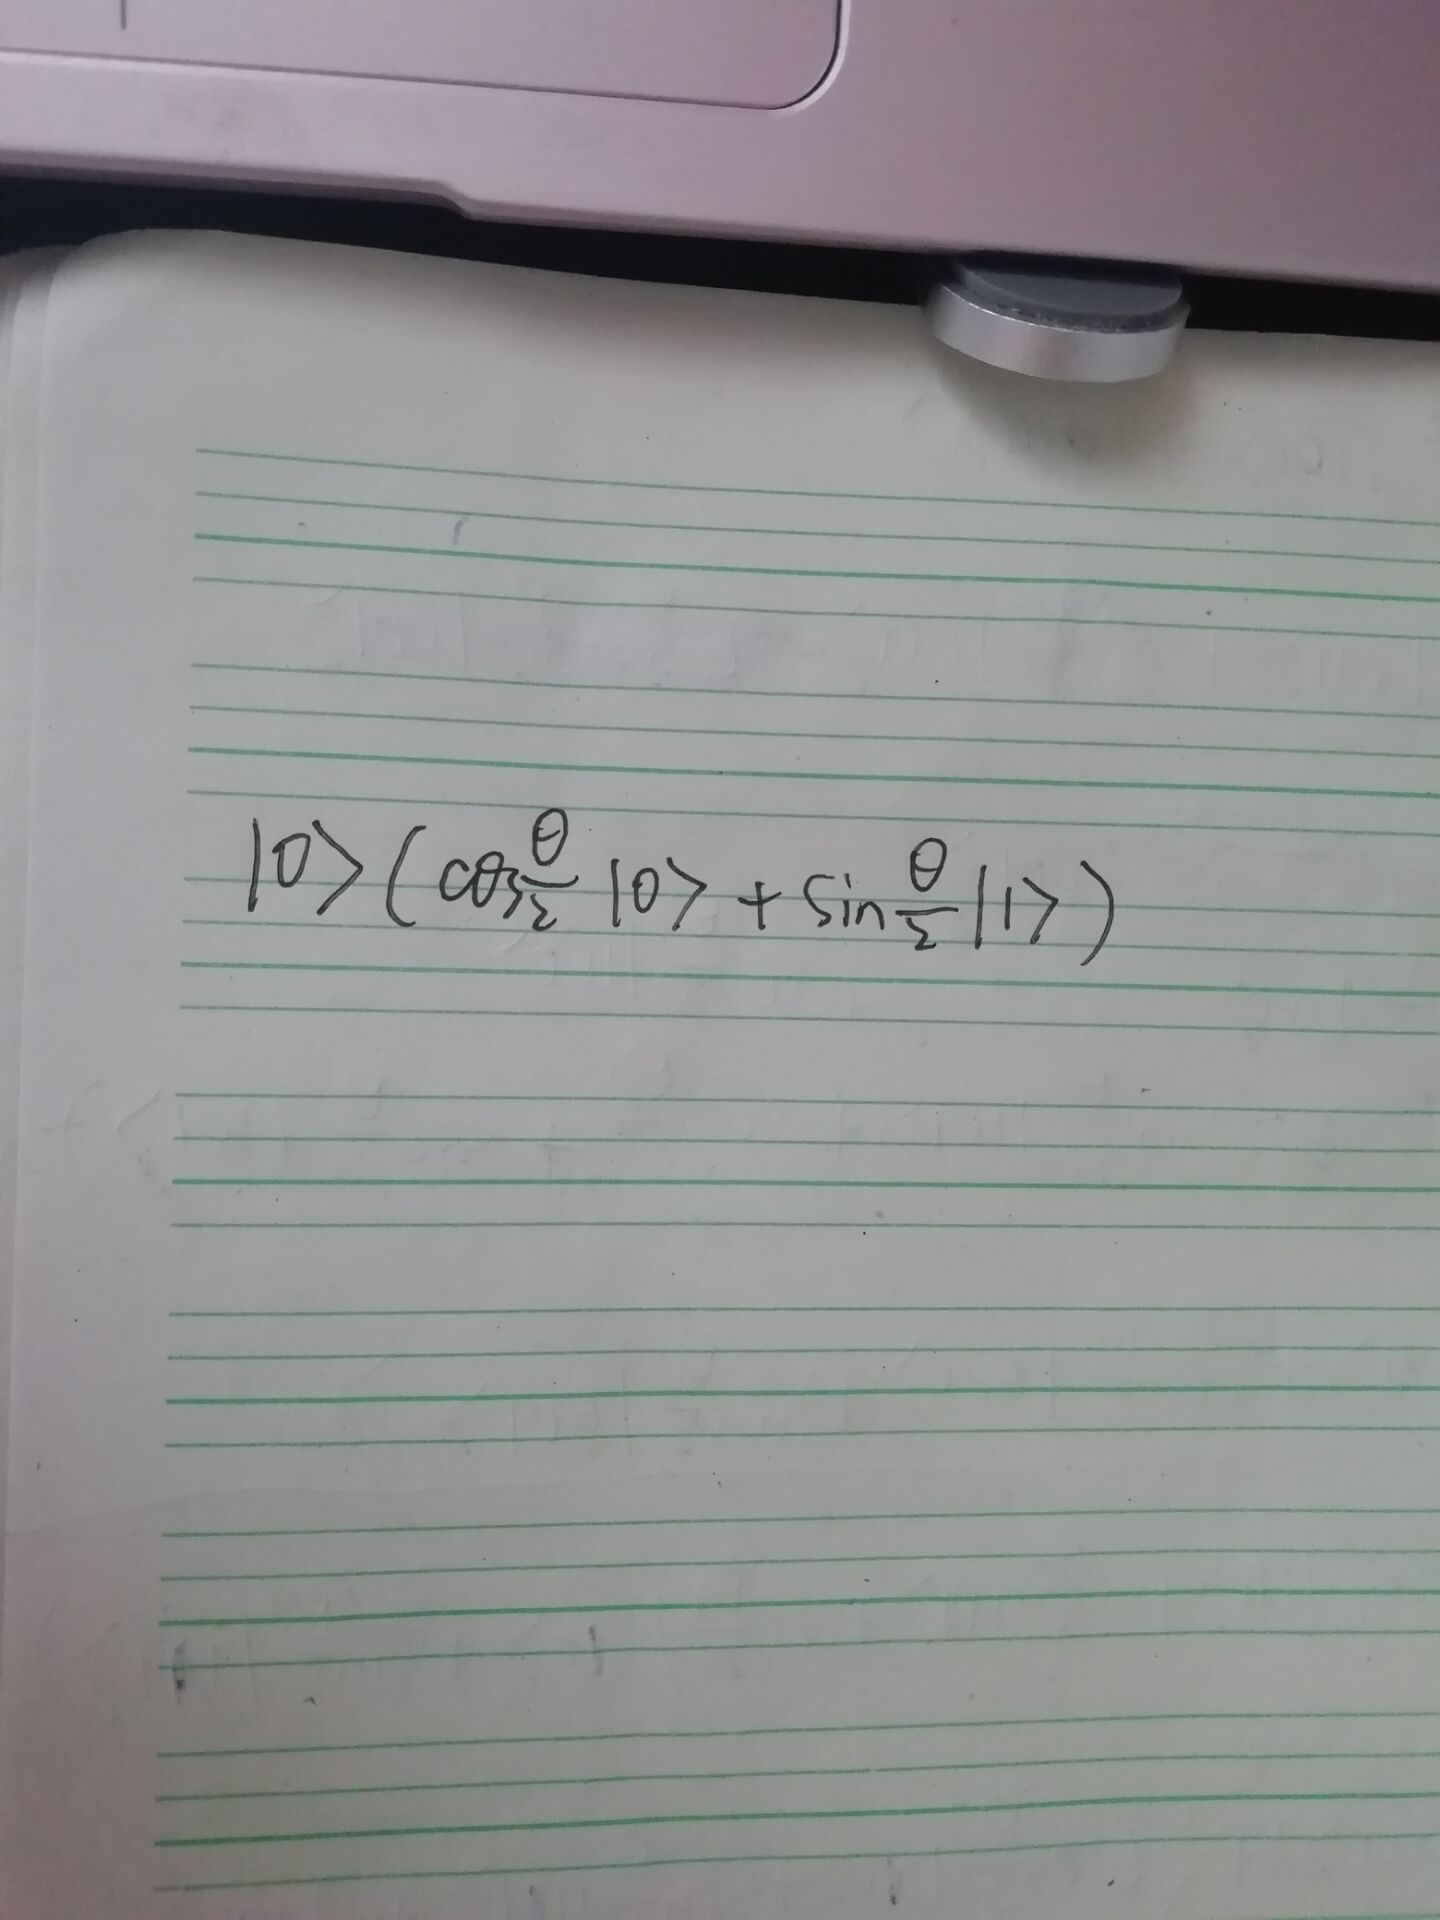 |0⟩(cos θ/2 |0⟩ + sin θ/2 |1⟩)